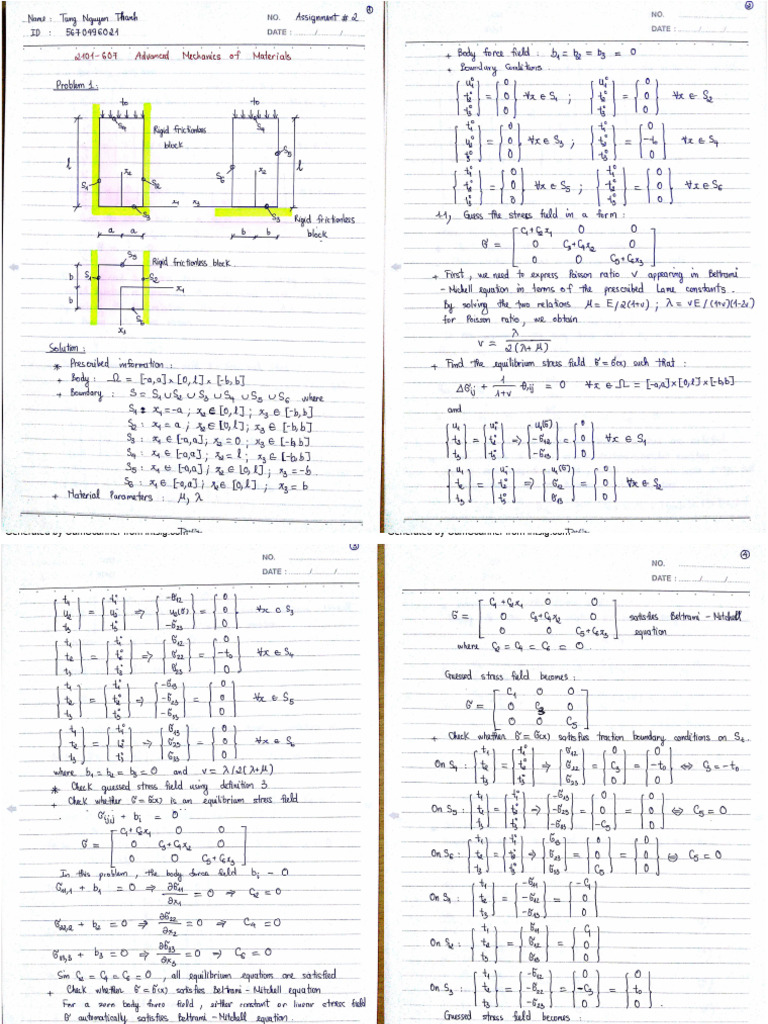 Name : Tang Nguyen Thanh
NO. Assignment # 2
ID : 5670496021
DATE : ...... / ...... / ......
2101-607 Advanced Mechanics of Materials
Problem 1 :
t₀ t₀
S₄ S₄
Rigid frictionless block
S₅
l x₂ S₆ x₂ l
S₁ S₂
S₃ x₁ x₃ S₃
Rigid frictionless block
a a b b
S₅
b S₁ S₂ Rigid frictionless block
x₁
b S₆
x₃
Solution :
* Prescribed information :
+ Body : Ω = [-a,a] × [0,l] × [-b,b]
+ Boundary : S = S₁ ∪ S₂ ∪ S₃ ∪ S₄ ∪ S₅ ∪ S₆ where
S₁ : x₁ = -a ; x₂ ∈ [0,l] ; x₃ ∈ [-b,b]
S₂ : x₁ = a ; x₂ ∈ [0,l] ; x₃ ∈ [-b,b]
S₃ : x₁ ∈ [-a,a] ; x₂ = 0 ; x₃ ∈ [-b,b]
S₄ : x₁ ∈ [-a,a] ; x₂ = l ; x₃ ∈ [-b,b]
S₅ : x₁ ∈ [-a,a] ; x₂ ∈ [0,l] ; x₃ = -b
S₆ : x₁ ∈ [-a,a] ; x₂ ∈ [0,l] ; x₃ = b
+ Material Parameters : μ, λ
Generated by CamScanner from intsig.com
②
NO.
DATE : ...... / ...... / ......
+ Body force field : b₁ = b₂ = b₃ = 0
+ Boundary Conditions :
{u₁° t₂° t₃°} = {0 0 0} ∀x ∈ S₁ ; {u₁° t₂° t₃°} = {0 0 0} ∀x ∈ S₂
{t₁° u₂° t₃°} = {0 0 0} ∀x ∈ S₃ ; {t₁° t₂° t₃°} = {0 -t₀ 0} ∀x ∈ S₄
{t₁° t₂° t₃°} = {0 0 0} ∀x ∈ S₅ ; {t₁° t₂° t₃°} = {0 0 0} ∀x ∈ S₆
1.1, Guess the stress field in a form :
σ = [C₁+C₂x₁ 0 0
0 C₃+C₄x₂ 0
0 0 C₅+C₆x₃]
+ First, we need to express Poisson ratio ν appearing in Beltrami
- Michell equation in terms of the prescribed Lame constants.
By solving the two relations μ = E/2(1+ν) ; λ = νE/(1+ν)(1-2ν)
for Poisson ratio, we obtain
ν = λ / 2(λ+μ)
+ Find the equilibrium stress field σ = σ(x) such that :
Δσij + 1/(1+ν) θ,ij = 0 ∀x ∈ Ω = [-a,a]×[0,l]×[-b,b]
and
{u₁ t₂ t₃} = {u₁° t₂° t₃°} ⇒ {u₁(σ) -σ₁₂ -σ₁₃} = {0 0 0} ∀x ∈ S₁
{u₁ t₂ t₃} = {u₁° t₂° t₃°} ⇒ {u₁(σ) σ₁₂ σ₁₃} = {0 0 0} ∀x ∈ S₂
Generated by CamScanner from intsig.com
③
NO.
DATE : ...... / ...... / ......
{t₁ u₂ t₃} = {t₁° u₂° t₃°} ⇒ {-σ₁₂ u₂(σ) -σ₂₃} = {0 0 0} ∀x ∈ S₃
{t₁ t₂ t₃} = {t₁° t₂° t₃°} ⇒ {σ₁₂ σ₂₂ σ₂₃} = {0 -t₀ 0} ∀x ∈ S₄
{t₁ t₂ t₃} = {t₁° t₂° t₃°} ⇒ {-σ₁₃ -σ₂₃ -σ₃₃} = {0 0 0} ∀x ∈ S₅
{t₁ t₂ t₃} = {t₁° t₂° t₃°} ⇒ {σ₁₃ σ₂₃ σ₃₃} = {0 0 0} ∀x ∈ S₆
where b₁ = b₂ = b₃ = 0 and ν = λ/2(λ+μ)
* Check guessed stress field using definition 3
+ Check whether σ = σ(x) is an equilibrium stress field
σij,j + bi = 0
σ = [C₁+C₂x₁ 0 0
0 C₃+C₄x₂ 0
0 0 C₅+C₆x₃]
In this problem, the body force field bi = 0
σ₁₁,₁ + b₁ = 0 ⇒ ∂σ₁₁/∂x₁ = 0 ⇒ C₂ = 0
σ₂₂,₂ + b₂ = 0 ⇒ ∂σ₂₂/∂x₂ = 0 ⇒ C₄ = 0
σ₃₃,₃ + b₃ = 0 ⇒ ∂σ₃₃/∂x₃ = 0 ⇒ C₆ = 0
Sin C₂ = C₄ = C₆ = 0, all equilibrium equations are satisfied
+ Check whether σ = σ(x) satisfies Beltrami - Mitchell equation
For a zero body force field, either constant or linear stress field
σ automatically satisfies Beltrami - Mitchell equation.
④
NO.
DATE : ...... / ...... / ......
σ = [C₁+C₂x₁ 0 0
0 C₃+C₄x₂ 0
0 0 C₅+C₆x₃] satisfies Beltrami - Mitchell equation
where C₂ = C₄ = C₆ = 0.
Guessed stress field becomes :
σ = [C₁ 0 0
0 C₃ 0
0 0 C₅]
+ Check whether σ = σ(x) satisfies traction boundary conditions on St.
On S₄ : {t₁ t₂ t₃} = {t₁° t₂° t₃°} ⇒ {σ₁₂ σ₂₂ σ₂₃} = {0 C₃ 0} = {0 -t₀ 0} ⇔ C₃ = -t₀
On S₅ : {t₁ t₂ t₃} = {t₁° t₂° t₃°} ⇒ {-σ₁₃ -σ₂₃ -σ₃₃} = {0 0 -C₅} = {0 0 0} ⇔ C₅ = 0
On S₆ : {t₁ t₂ t₃} = {t₁° t₂° t₃°} ⇒ {σ₁₃ σ₂₃ σ₃₃} = {0 0 C₅} = {0 0 0} ⇔ C₅ = 0
On S₁ : {t₁ t₂ t₃} = {-σ₁₁ -σ₁₂ -σ₁₃} = {-C₁ 0 0}
On S₂ : {t₁ t₂ t₃} = {σ₁₁ σ₁₂ σ₁₃} = {C₁ 0 0}
On S₃ : {t₁ t₂ t₃} = {-σ₁₂ -σ₂₂ -σ₂₃} = {0 -C₃ 0} = {0 t₀ 0}
Guessed stress field becomes :